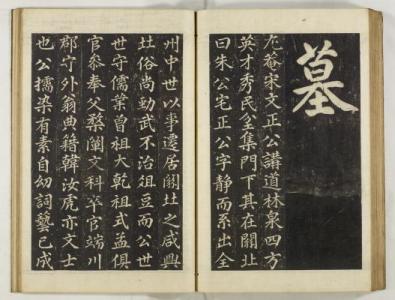 墓
尤菴宋文正公講道林泉四方
英才秀民坌集門下其在關北
曰朱公宅正公字靜而系出全
州中世以事遷居關北之咸興
北俗尚勁武不治俎豆而公世
世守儒業曾祖大乾祖式孟俱
官參奉父檠闡文科卒官端川
郡守外翁典籍韓汝虎亦文士
也公擩染有素自幼詞藝已成